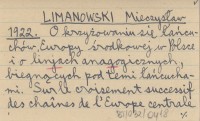 LIMANOWSKI Mieczysław
1922. O krzyżowaniu się łańcu-
chów Europy środkowej w Polsce
i o linjach anagogicznych,
biegnących pod temi łańcucha-
mi. Sur le croisement successif
des chaînes de l'Europe centrale